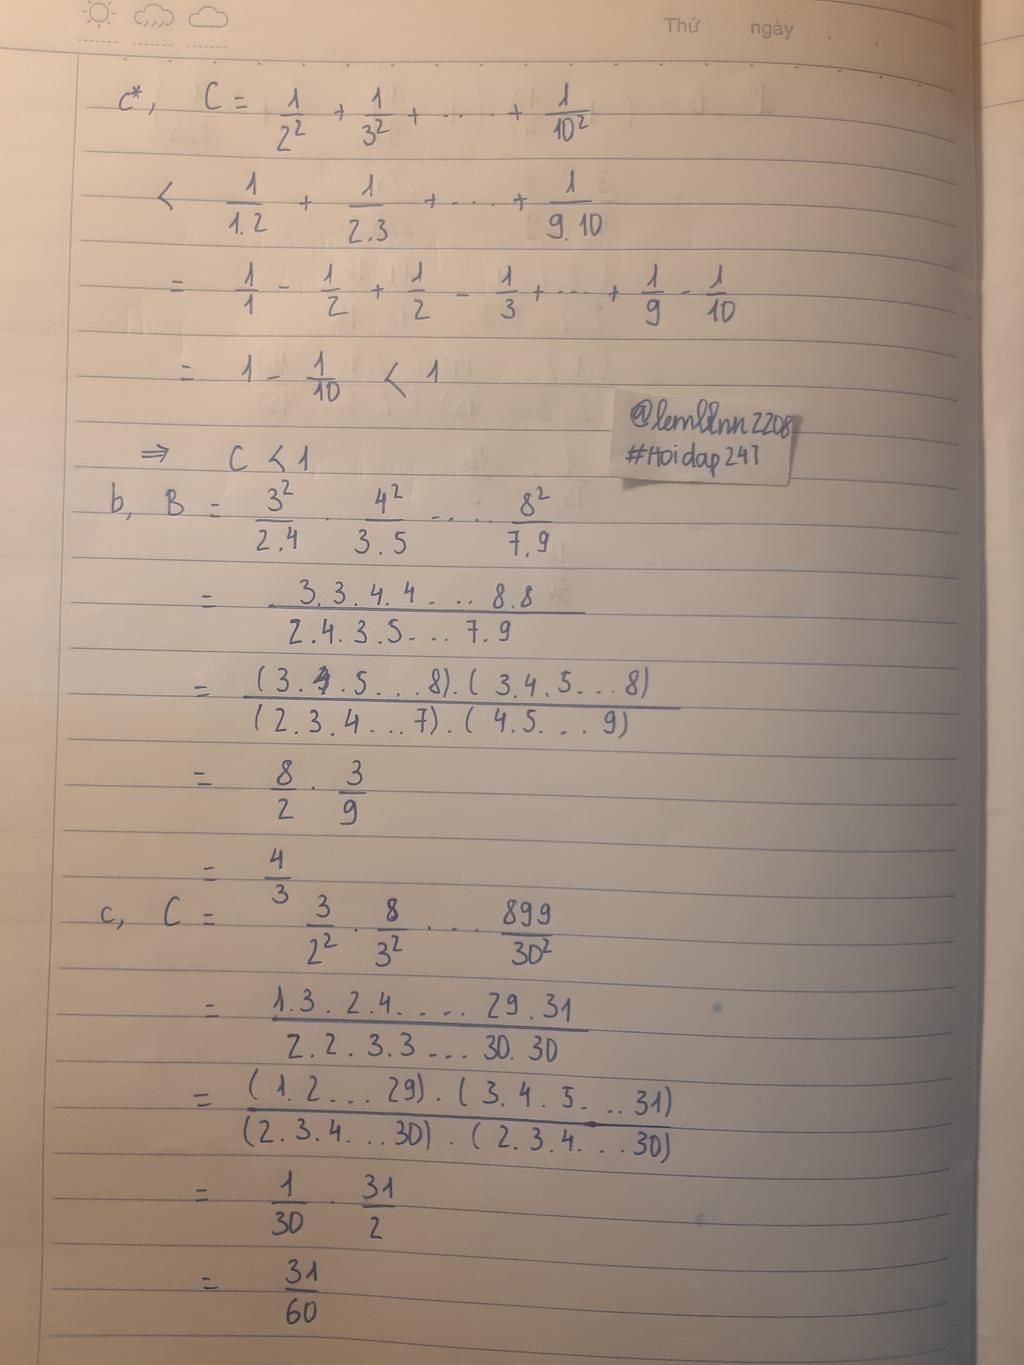 Thứ ngày
c*, C = 1/2² + 1/3² + .... + 1/10²
< 1/1.2 + 1/2.3 + .... + 1/9.10
= 1/1 - 1/2 + 1/2 - 1/3 + ... + 1/9 - 1/10
= 1 - 1/10 < 1
@lemllnn2208
#Hoidap247
⇒ C < 1
b, B = 3²/2.4 . 4²/3.5 .... 8²/7.9
= 3.3.4.4...8.8/2.4.3.5...7.9
= (3.4.5...8).(3.4.5...8)/(2.3.4...7).(4.5...9)
= 8/2 . 3/9
= 4/3
c, C = 3/2² . 8/3² .... 899/30²
= 1.3.2.4.....29.31/2.2.3.3...30.30
= (1.2...29).(3.4.5...31)/(2.3.4...30).(2.3.4...30)
= 1/30 . 31/2
= 31/60